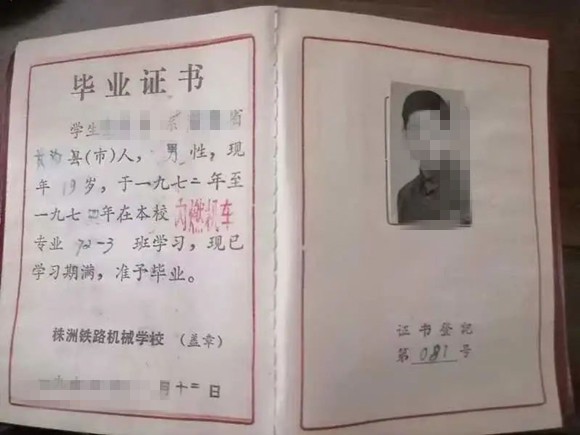 毕业证书
学生 系 省
县(市)人，男性，现
年19岁，于一九七二年至
一九七 年在本校内燃机车
专业72-3班学习，现已
学习期满，准予毕业。
株洲铁路机械学校（盖章）
月十二日
证书登记
第081号